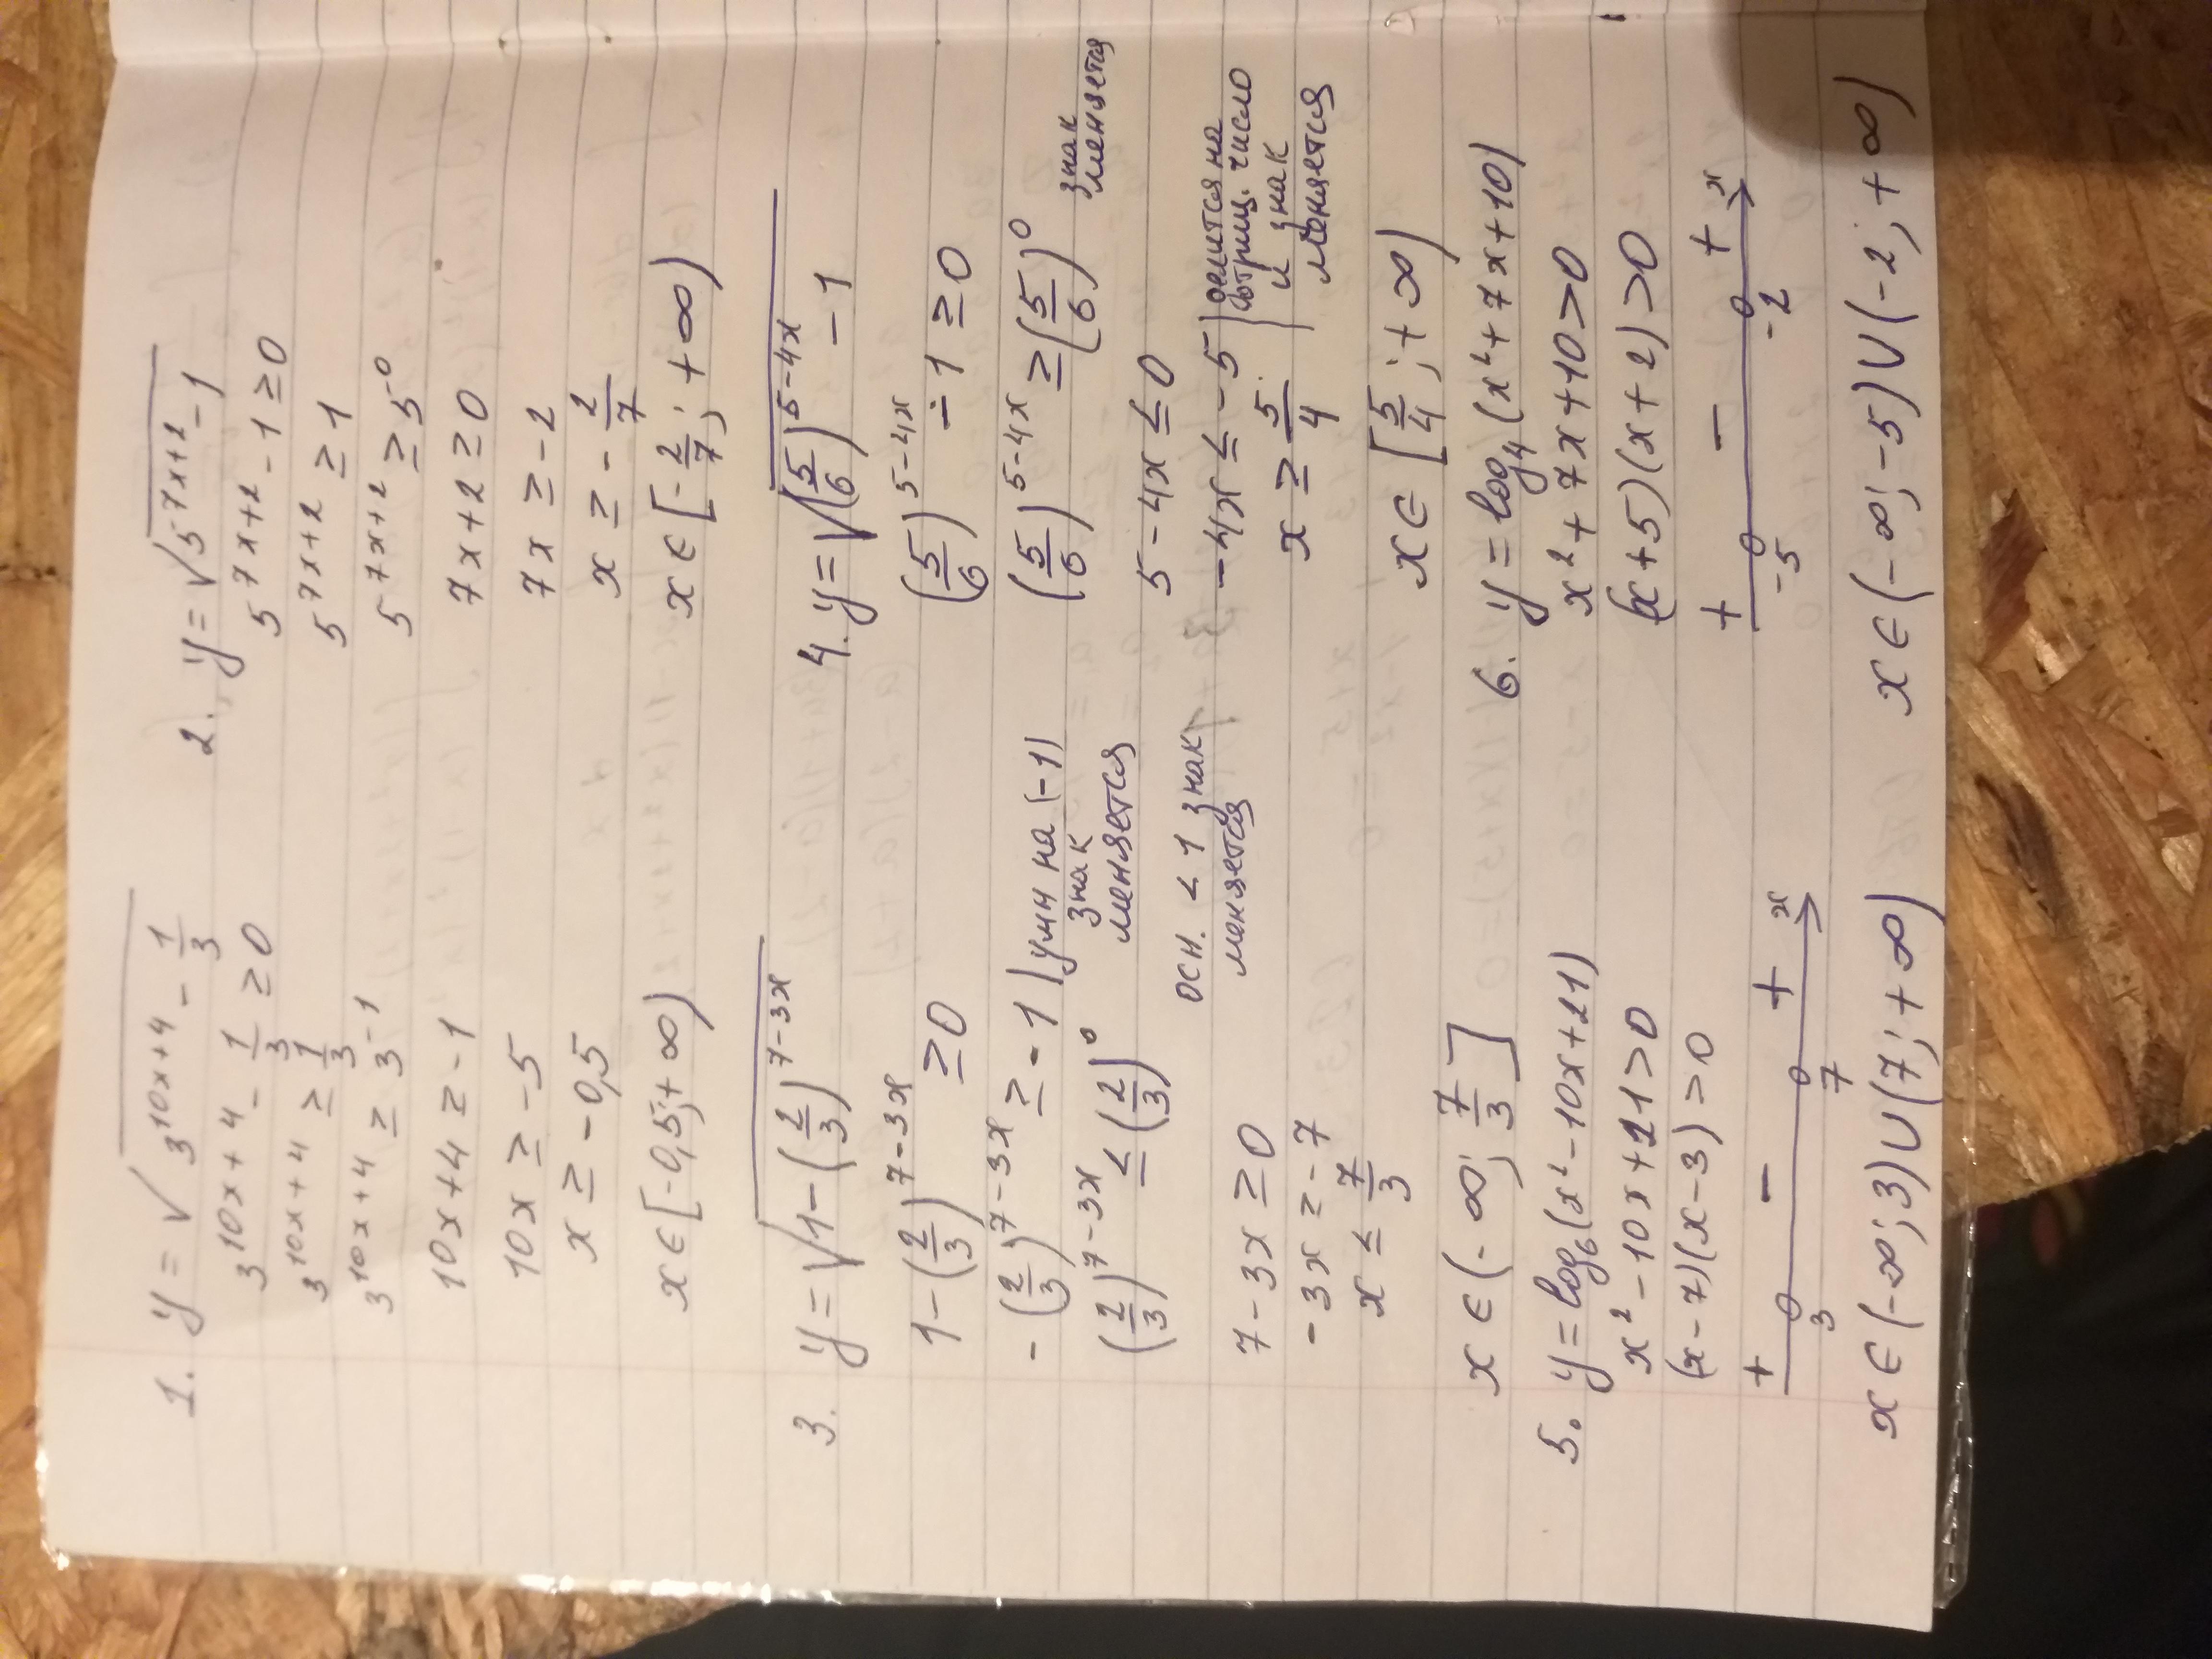 1. y = √(3^(10x+4) - 1/3)
3^(10x+4) - 1/3 ≥ 0
3^(10x+4) ≥ 1/3
3^(10x+4) ≥ 3^(-1)
10x+4 ≥ -1
10x ≥ -5
x ≥ -0,5
x ∈ [-0,5; +∞)
2. y = √(5^(7x+2) - 1)
5^(7x+2) - 1 ≥ 0
5^(7x+2) ≥ 1
5^(7x+2) ≥ 5^0
7x+2 ≥ 0
7x ≥ -2
x ≥ -2/7
x ∈ [-2/7; +∞)
3. y = √(1-(2/3)^(7-3x))
1-(2/3)^(7-3x) ≥ 0
-(2/3)^(7-3x) ≥ -1 | умн на (-1)
знак
меняется
(2/3)^(7-3x) ≤ (2/3)^0
осн. < 1 знак
меняется
7-3x ≥ 0
-3x ≥ -7
x ≤ 7/3
x ∈ (-∞; 7/3]
4. y = √((5/6)^(5-4x) - 1)
(5/6)^(5-4x) - 1 ≥ 0
(5/6)^(5-4x) ≥ (5/6)^0
знак
меняется
5-4x ≤ 0
-4x ≤ -5 | делится на
отриц. число
и знак
меняется
x ≥ 5/4
x ∈ [5/4; +∞)
5. y = log₆(x²-10x+21)
x²-10x+21>0
(x-7)(x-3)>0
+ - + x
3 7
x ∈ (-∞; 3)∪(7; +∞)
6. y = log₄(x²+7x+10)
x²+7x+10>0
(x+5)(x+2)>0
+ - + x
-5 -2
x ∈ (-∞; -5)∪(-2; +∞)